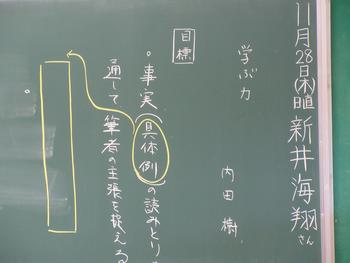 11月28日(木)日直 新井海翔さん
学ぶ力
内田樹
目標
。事実(具体例)の読みとり
通して筆者の主張を捉える
。